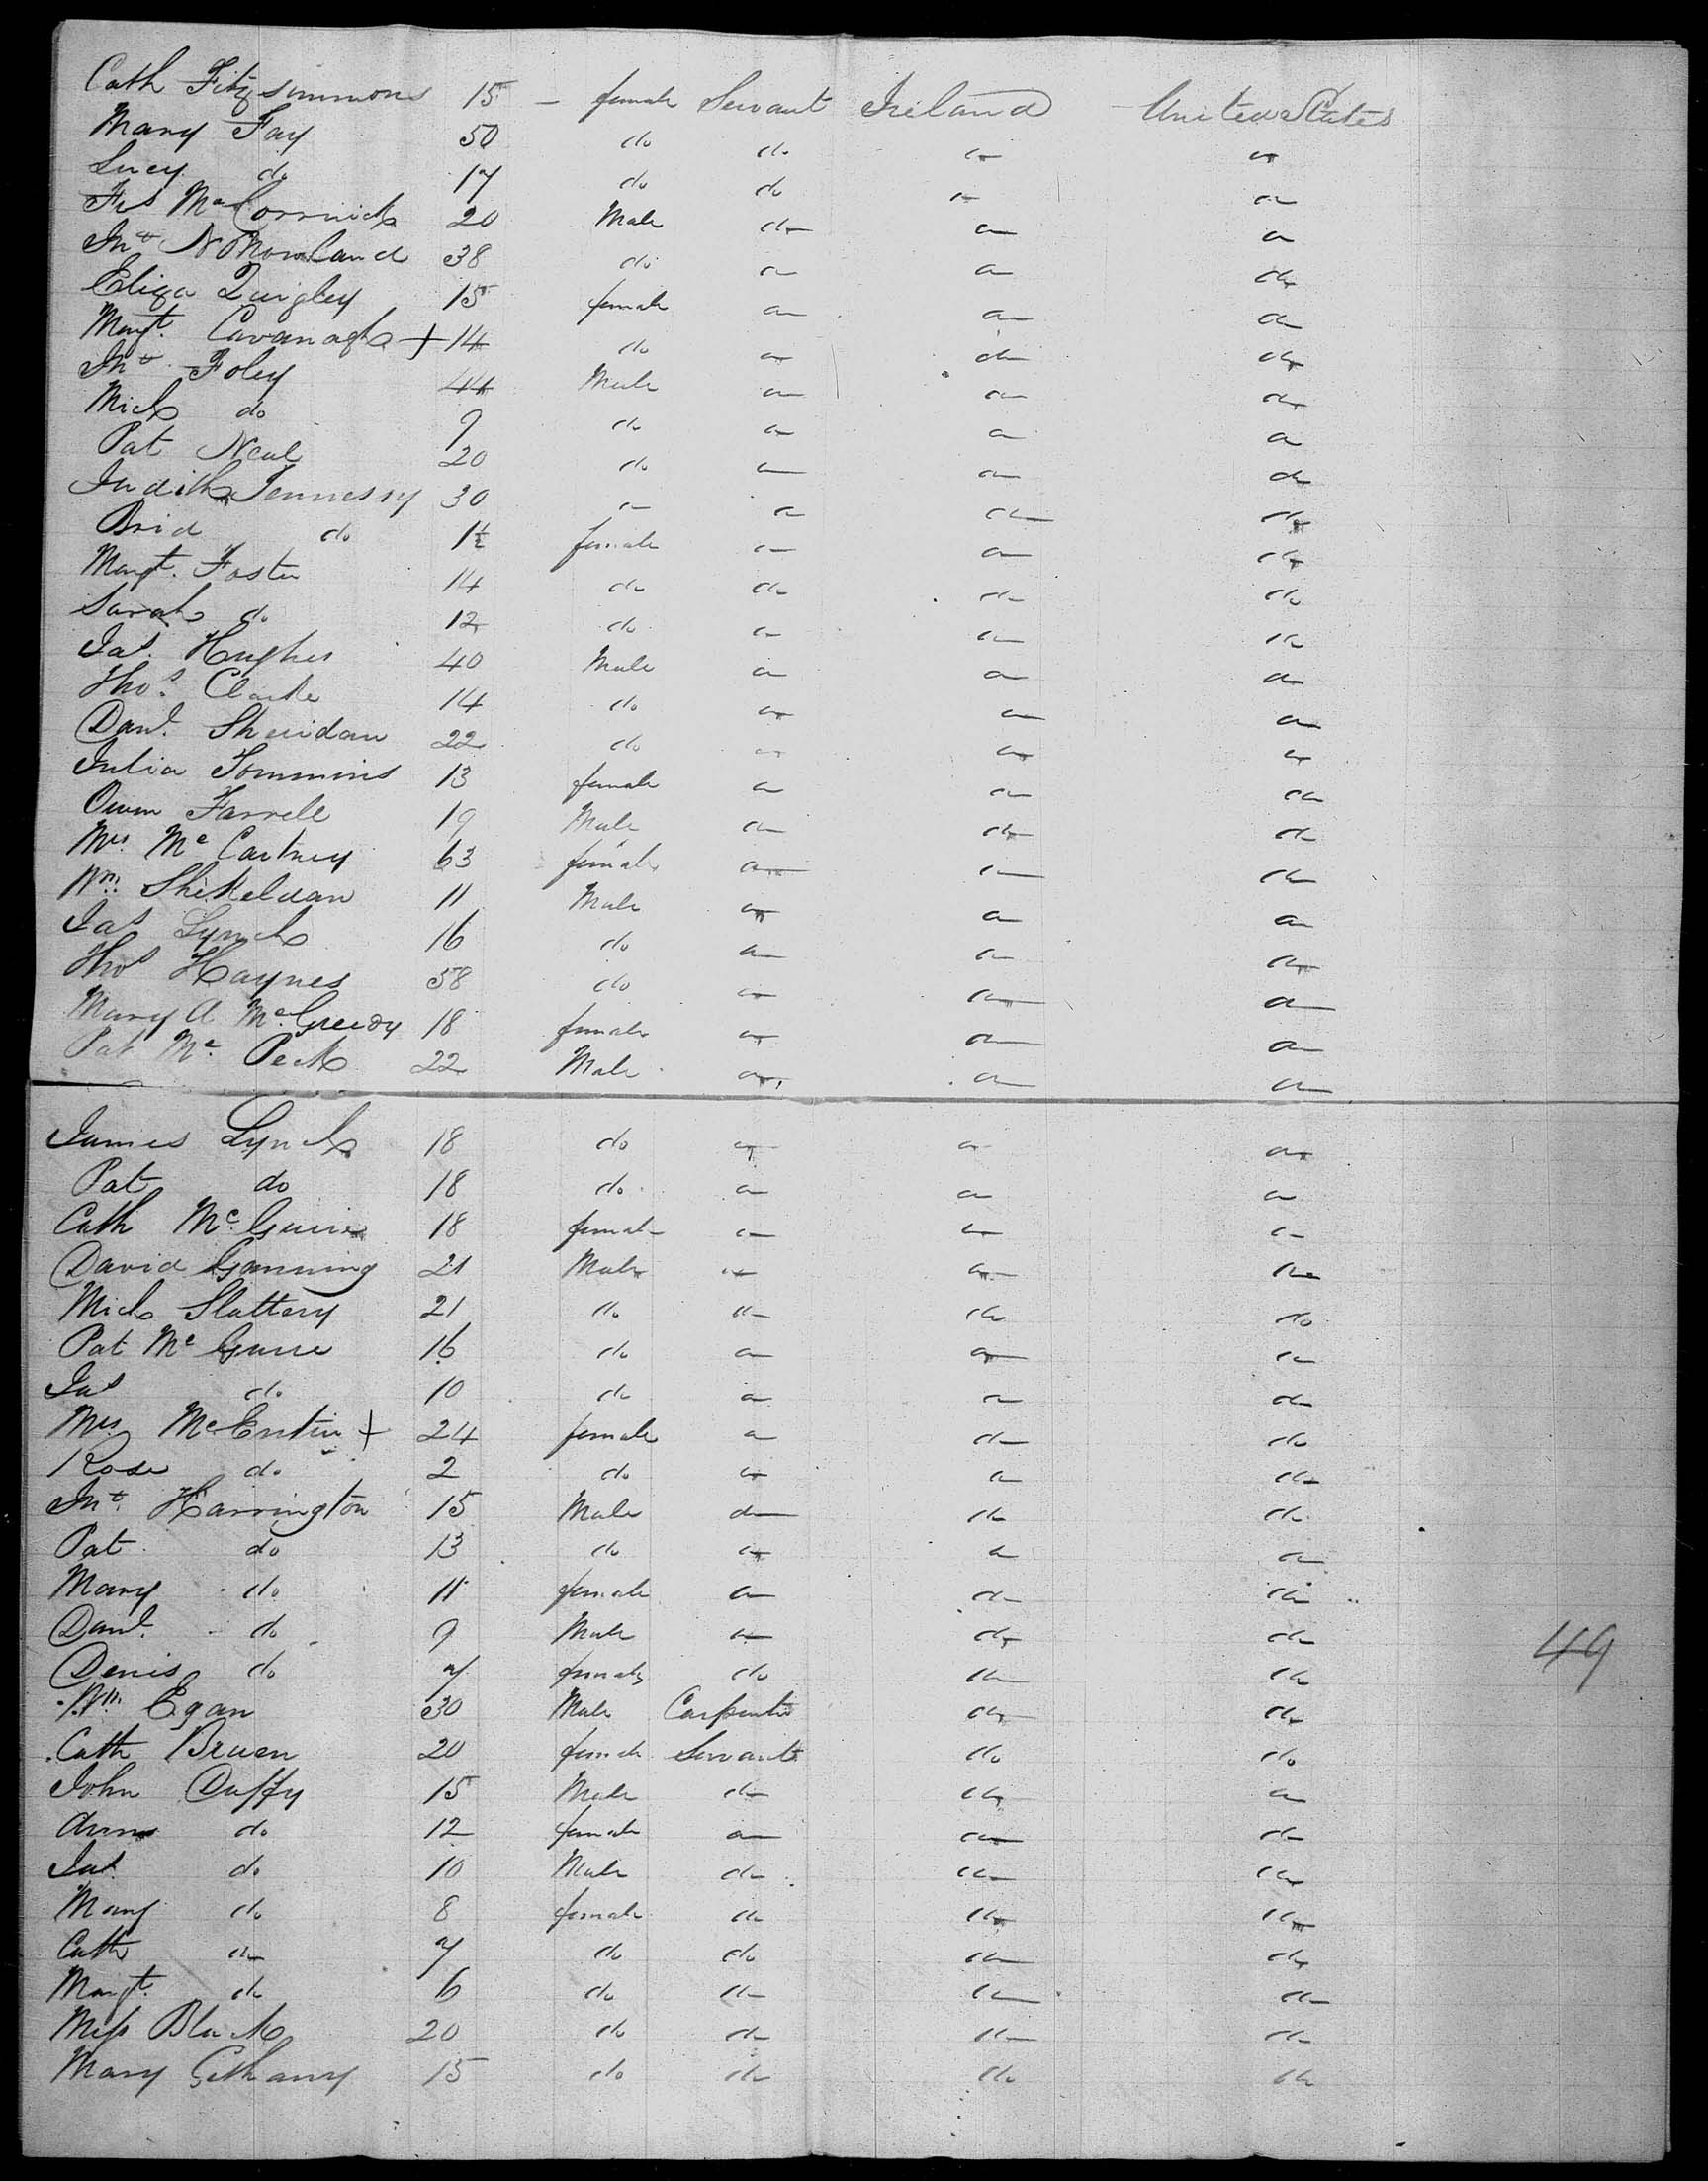 Cath Fitzsimmons 15 – female Servant Ireland United States
Mary Fay 50 do do do do
Lucy do 17 do do do do
Frs McCormick 20 Male do do do
Jno 38 do do do do
Eliza Quigley 15 female do do do
Margt. Cavanagh + 14 do do do do
Jno Foley 44 Male do do do
Mich do 9 do do do do
Pat Neal 20 do do do do
Judith Tennessy 30 do do do do
Brid do 1½ female do do do
Margt. Foster 14 do do do do
Sarah do 12 do do do do
Jas. Hughes 40 Male do do do
Thos. Clarke 14 do do do do
Danl. Sheridan 22 do do do do
Julia Tommins 13 female do do do
Owen Farrell 19 Male do do do
Mrs. Mc Cartney 63 female do do do
Wm. Shekeluan 11 Male do do do
Jas Lynch 16 do do do do
Thos Haynes 58 do do do do
Mary A 18 female do do do
Pat Mc. Peak 22 Male do do do
James Lynch 18 do do do do
Pat do 18 do do do do
Cath Mc. Guire 18 female do do do
David Ganning 21 Male do do do
Mich Slattery 21 do do do do
Pat Mc Guire 16 do do do do
Jas do 10 do do do do
Mrs. McEntire + 24 female do do do
Rose do 2 do do do do
Jno. Harrington 15 Male do do do
Pat do 13 do do do do
Mary do 11 female do do do
Danl. do 9 Male do do do
Denis do 7 female do do do
49
Wm. Egan 30 Male Carpenter do do
Cath Bruen 20 female Servant do do
John Duffy 15 Male do do do
Anne do 12 female do do do
Jas do 10 Male do do do
Mary do 8 female do do do
Cath do 7 do do do do
Margt. do 6 do do do do
Miss Black 20 do do do do
Mary Gethany 15 do do do do